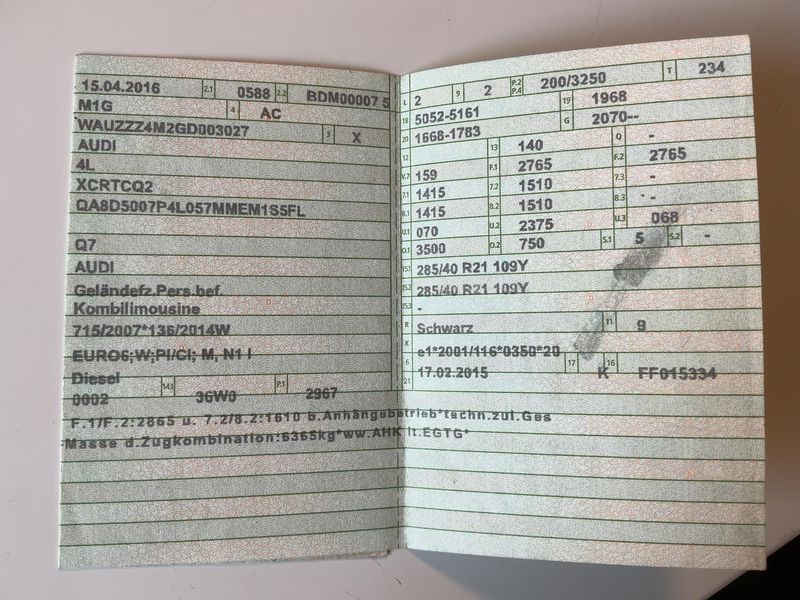 15.04.2016 2.1 0588 2.2 BDM00007 5
M1G 4 AC
WAUZZZ4M2GD003027 3 X
AUDI
4L
XCRTCQ2
QA8D5007P4L057MMEM1S5FL
Q7
AUDI
Geländefz.Pers.bef.
Kombilimousine
715/2007*136/2014W
EURO6;W;PI/CI; M, N1 I
Diesel
0002 14.1 36W0 P.1 2967
L 2 9 2 P.2 P.4 200/3250 T 234
18 5052-5161 19 1968
20 1668-1783 G 2070--
12 13 140 Q -
V.7 159 F.1 2765 F.2 2765
7.1 1415 7.2 1510 7.3 -
8.1 1415 8.2 1510 8.3 -
U.1 070 U.2 2375 U.3 068
O.1 3500 O.2 750 S.1 5 S.2 -
15.1 285/40 R21 109Y
15.2 285/40 R21 109Y
15.3 -
R Schwarz 11 9
K e1*2001/116*0350*20
6 17.02.2015 17 K 16 FF015334
21
F.1/F.2:2865 u. 7.2/8.2:1610 b.Anhängebetrieb*techn.zul.Ges
Masse d.Zugkombination:6365kg*ww.AHK lt.EGTG*